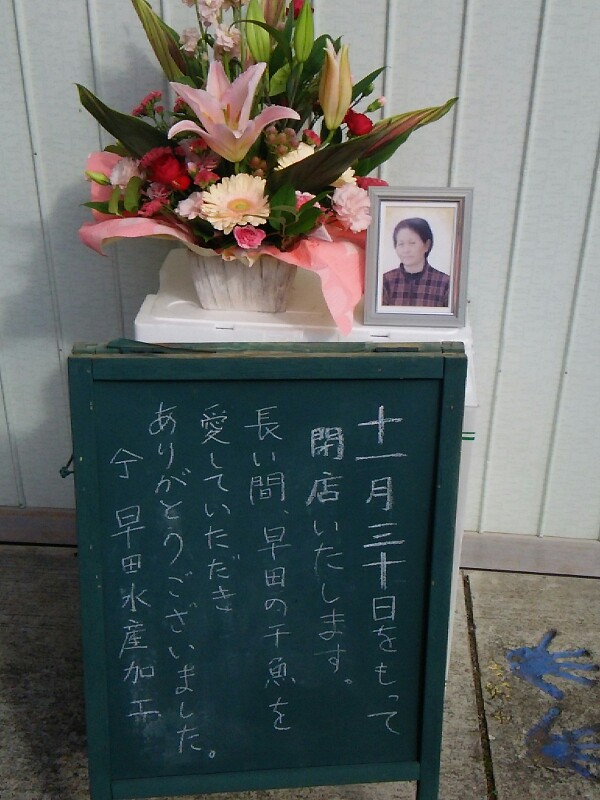 十一月三十日をもって
閉店いたします。
長い間、早田の干魚を
愛していただき
ありがとうございました。
㋾早田水産加工